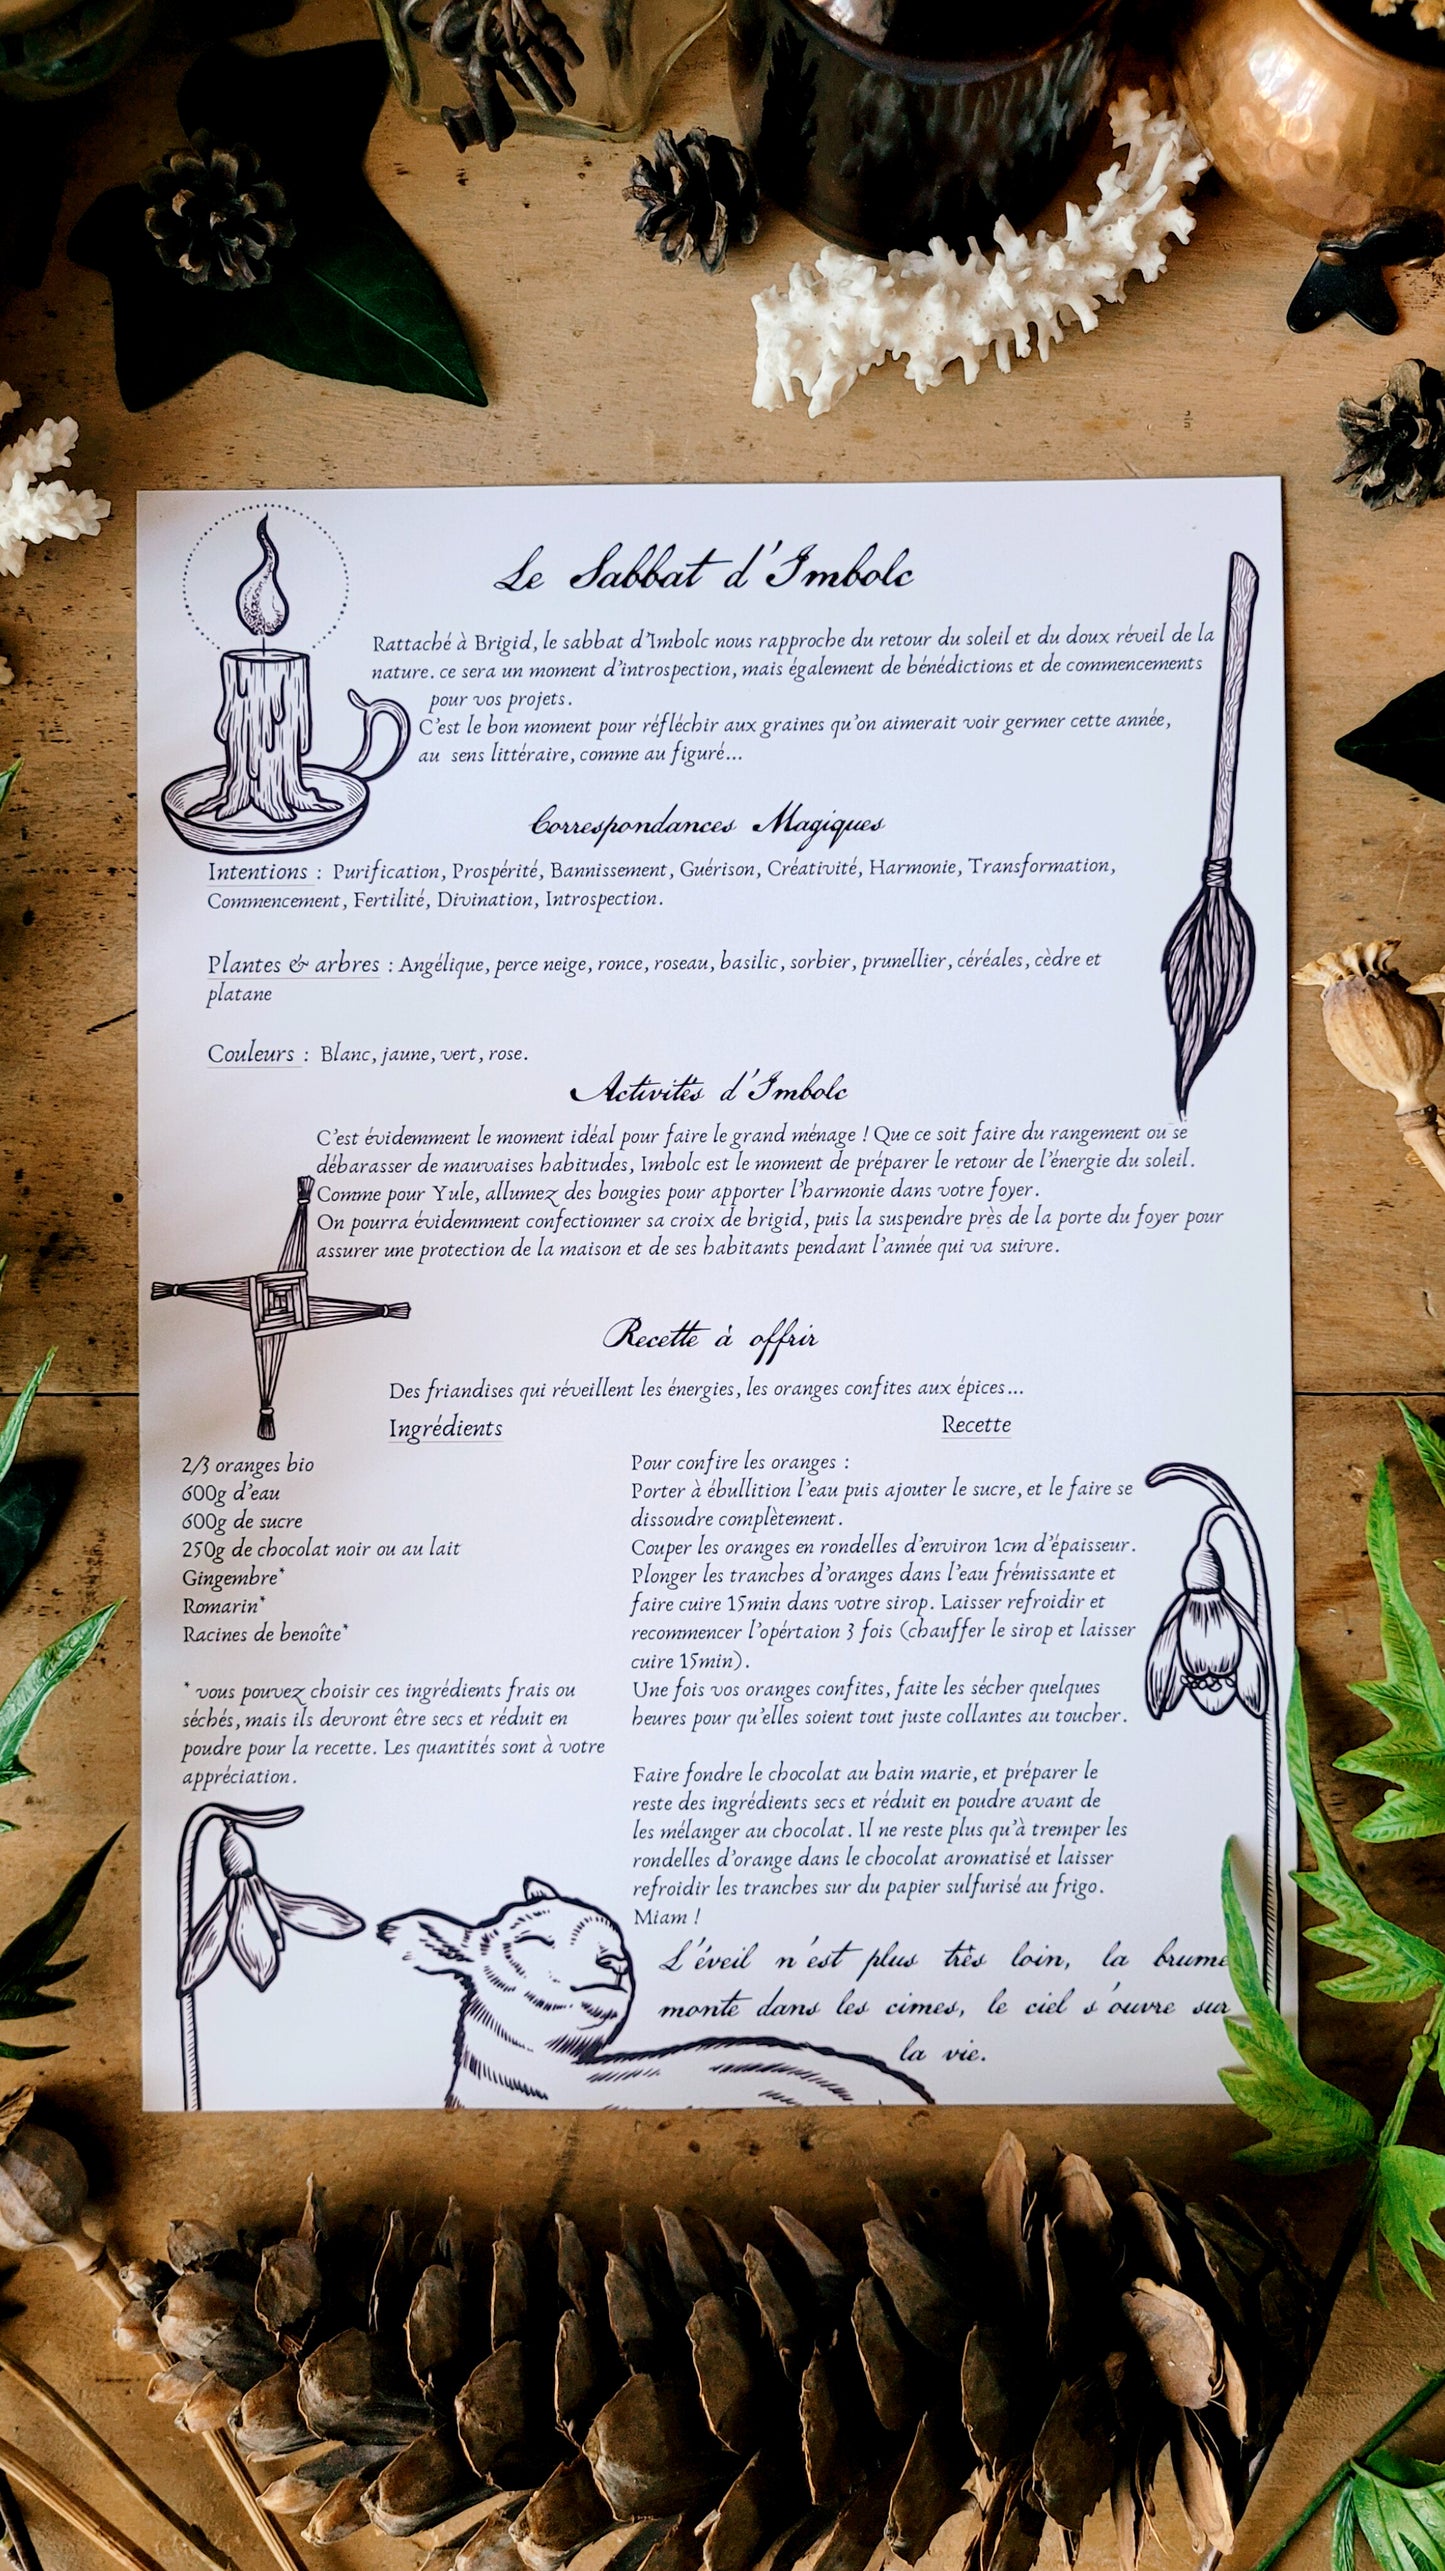 Le Sabbat d'Imbolc
Rattaché à Brigid, le sabbat d'Imbolc nous rapproche du retour du soleil et du doux réveil de la
nature. ce sera un moment d'introspection, mais également de bénédictions et de commencements
pour vos projets.
C'est le bon moment pour réfléchir aux graines qu'on aimerait voir germer cette année,
au sens littéraire, comme au figuré...
Correspondances Magiques
Intentions : Purification, Prospérité, Bannissement, Guérison, Créativité, Harmonie, Transformation,
Commencement, Fertilité, Divination, Introspection.
Plantes & arbres : Angélique, perce neige, ronce, roseau, basilic, sorbier, prunellier, céréales, cèdre et
platane
Couleurs : Blanc, jaune, vert, rose.
Activités d'Imbolc
C'est évidemment le moment idéal pour faire le grand ménage ! Que ce soit faire du rangement ou se
débarasser de mauvaises habitudes, Imbolc est le moment de préparer le retour de l'énergie du soleil.
Comme pour Yule, allumez des bougies pour apporter l'harmonie dans votre foyer.
On pourra évidemment confectionner sa croix de brigid, puis la suspendre près de la porte du foyer pour
assurer une protection de la maison et de ses habitants pendant l'année qui va suivre.
Recette à offrir
Des friandises qui réveillent les énergies, les oranges confites aux épices...
Ingrédients
2/3 oranges bio
600g d'eau
600g de sucre
250g de chocolat noir ou au lait
Gingembre*
Romarin*
Racines de benoîte*
* vous pouvez choisir ces ingrédients frais ou
séchés, mais ils devront être secs et réduit en
poudre pour la recette. Les quantités sont à votre
appréciation.
Recette
Pour confire les oranges :
Porter à ébullition l'eau puis ajouter le sucre, et le faire se
dissoudre complètement.
Couper les oranges en rondelles d'environ 1cm d'épaisseur.
Plonger les tranches d'oranges dans l'eau frémissante et
faire cuire 15min dans votre sirop. Laisser refroidir et
recommencer l'opértaion 3 fois (chauffer le sirop et laisser
cuire 15min).
Une fois vos oranges confites, faite les sécher quelques
heures pour qu'elles soient tout juste collantes au toucher.
Faire fondre le chocolat au bain marie, et préparer le
reste des ingrédients secs et réduit en poudre avant de
les mélanger au chocolat. Il ne reste plus qu'à tremper les
rondelles d'orange dans le chocolat aromatisé et laisser
refroidir les tranches sur du papier sulfurisé au frigo.
Miam !
L'éveil n'est plus très loin, la brume
monte dans les cimes, le ciel s'ouvre sur
la vie.